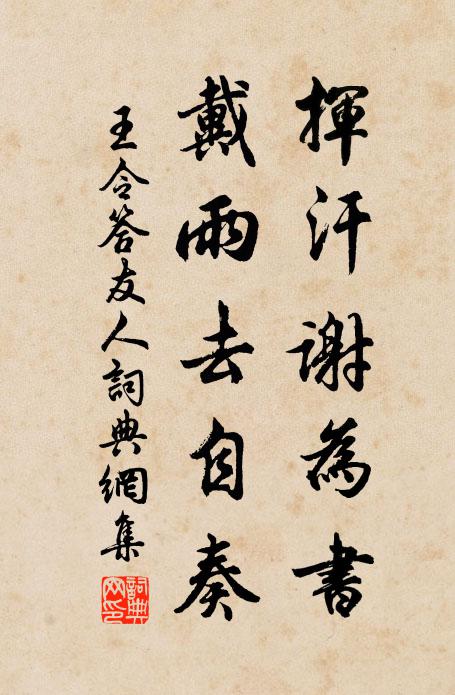 揮汗謝為書
戴雨去自奏
王令答友人詞典網集
詞典網印